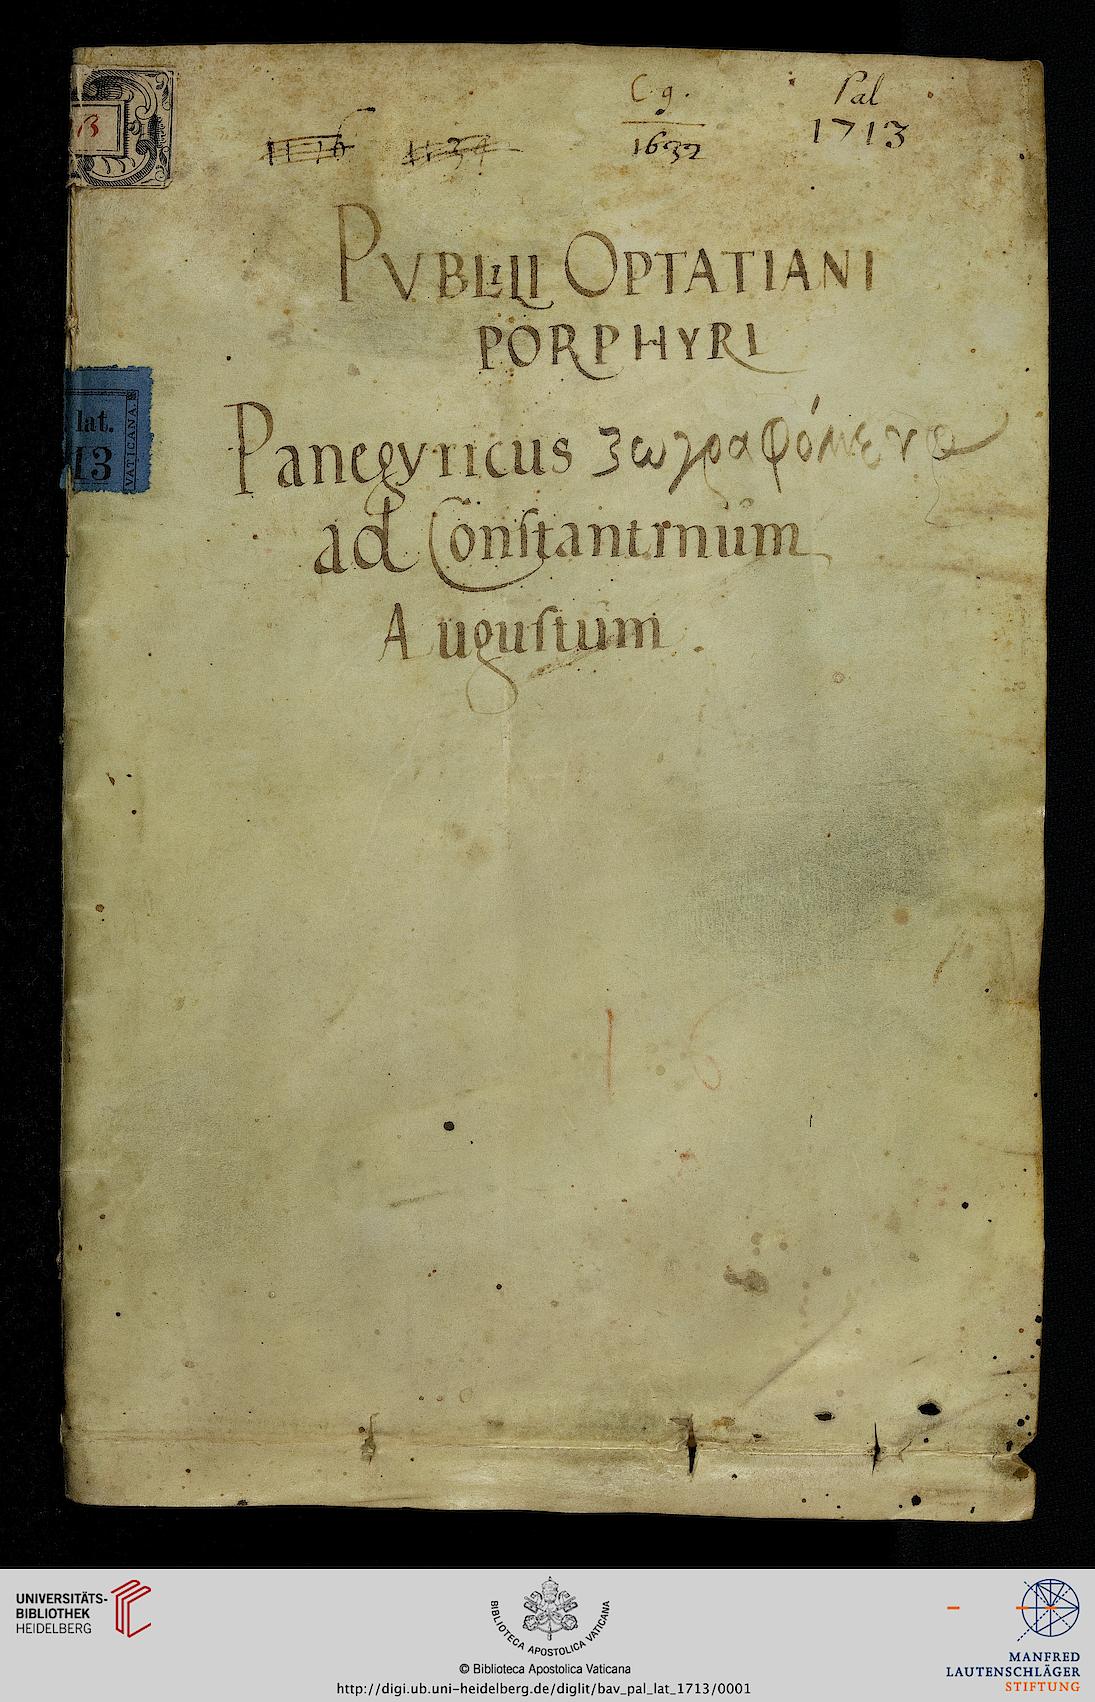 C. 9.
1632
Pal
1713
13
PVBLILII OPTATIANI
PORPHYRI
lat.
13
VATICANA.
Panegyricus ζωγραφόμενο
ad Conſtantinum
Auguſtum.
1 6
UNIVERSITÄTS-
BIBLIOTHEK
HEIDELBERG
BIBLIOTECA APOSTOLICA VATICANA
© Biblioteca Apostolica Vaticana
http://digi.ub.uni-heidelberg.de/diglit/bav_pal_lat_1713/0001
MANFRED
LAUTENSCHLÄGER
STIFTUNG